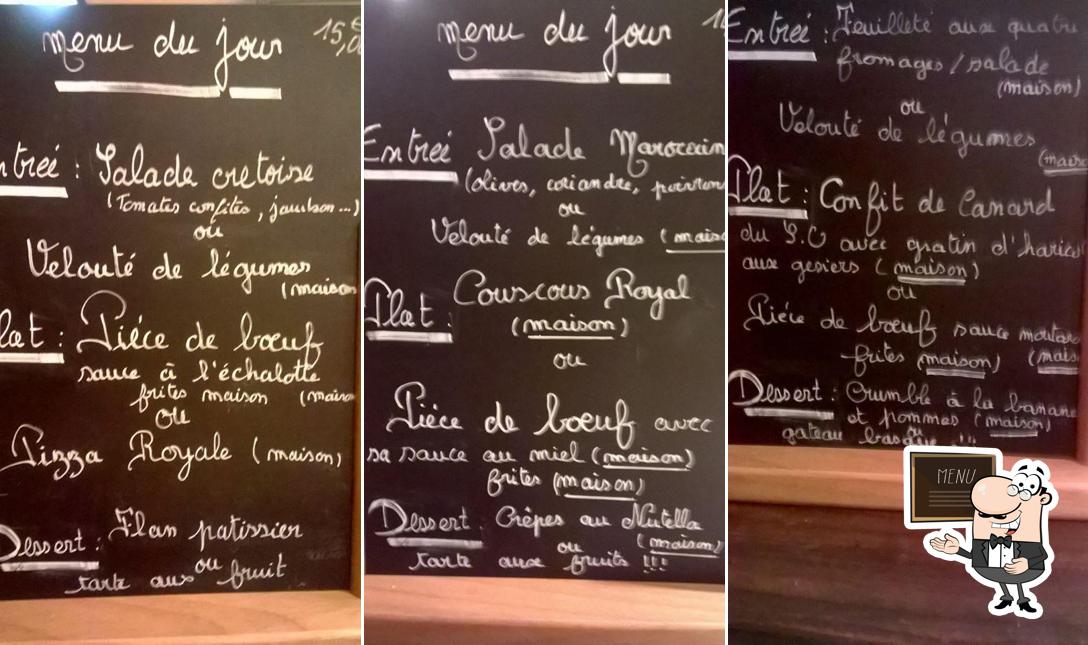 menu du jour 15,0
ntreé : Salade cretoise
(Tomates confites, jambon...)
ou
Velouté de légumes
(maison
lat : Piéce de bœuf
sauce à l'échalotte
frites maison (maison
ou
Pizza Royale (maison)
Dessert : Flan patissier
ou
tarte aux fruit
menu du jour 1
Entreé Salade Marocain
(olives, coriandre, poivrons
ou
Velouté de légumes (maiso
Plat : Couscous Royal
(maison)
ou
Piéce de boeuf avec
sa sauce au miel (maison)
frites (maison)
Dessert : Crêpes au Nutella
ou (maison)
tarte aux fruits !!!
Entreé : Feuilleté aux quatre
fromages/salade
(maison)
ou
Velouté de légumes
(maiso
Plat : Confit de Canard
du S.O avec gratin d'harico
aux gesiers (maison)
ou
Piéce de bœuf sauce moutard
frites (maison) (mais
Dessert : Crumble à la banane
et pommes (maison)
ou
gateau basque !!!
MENU